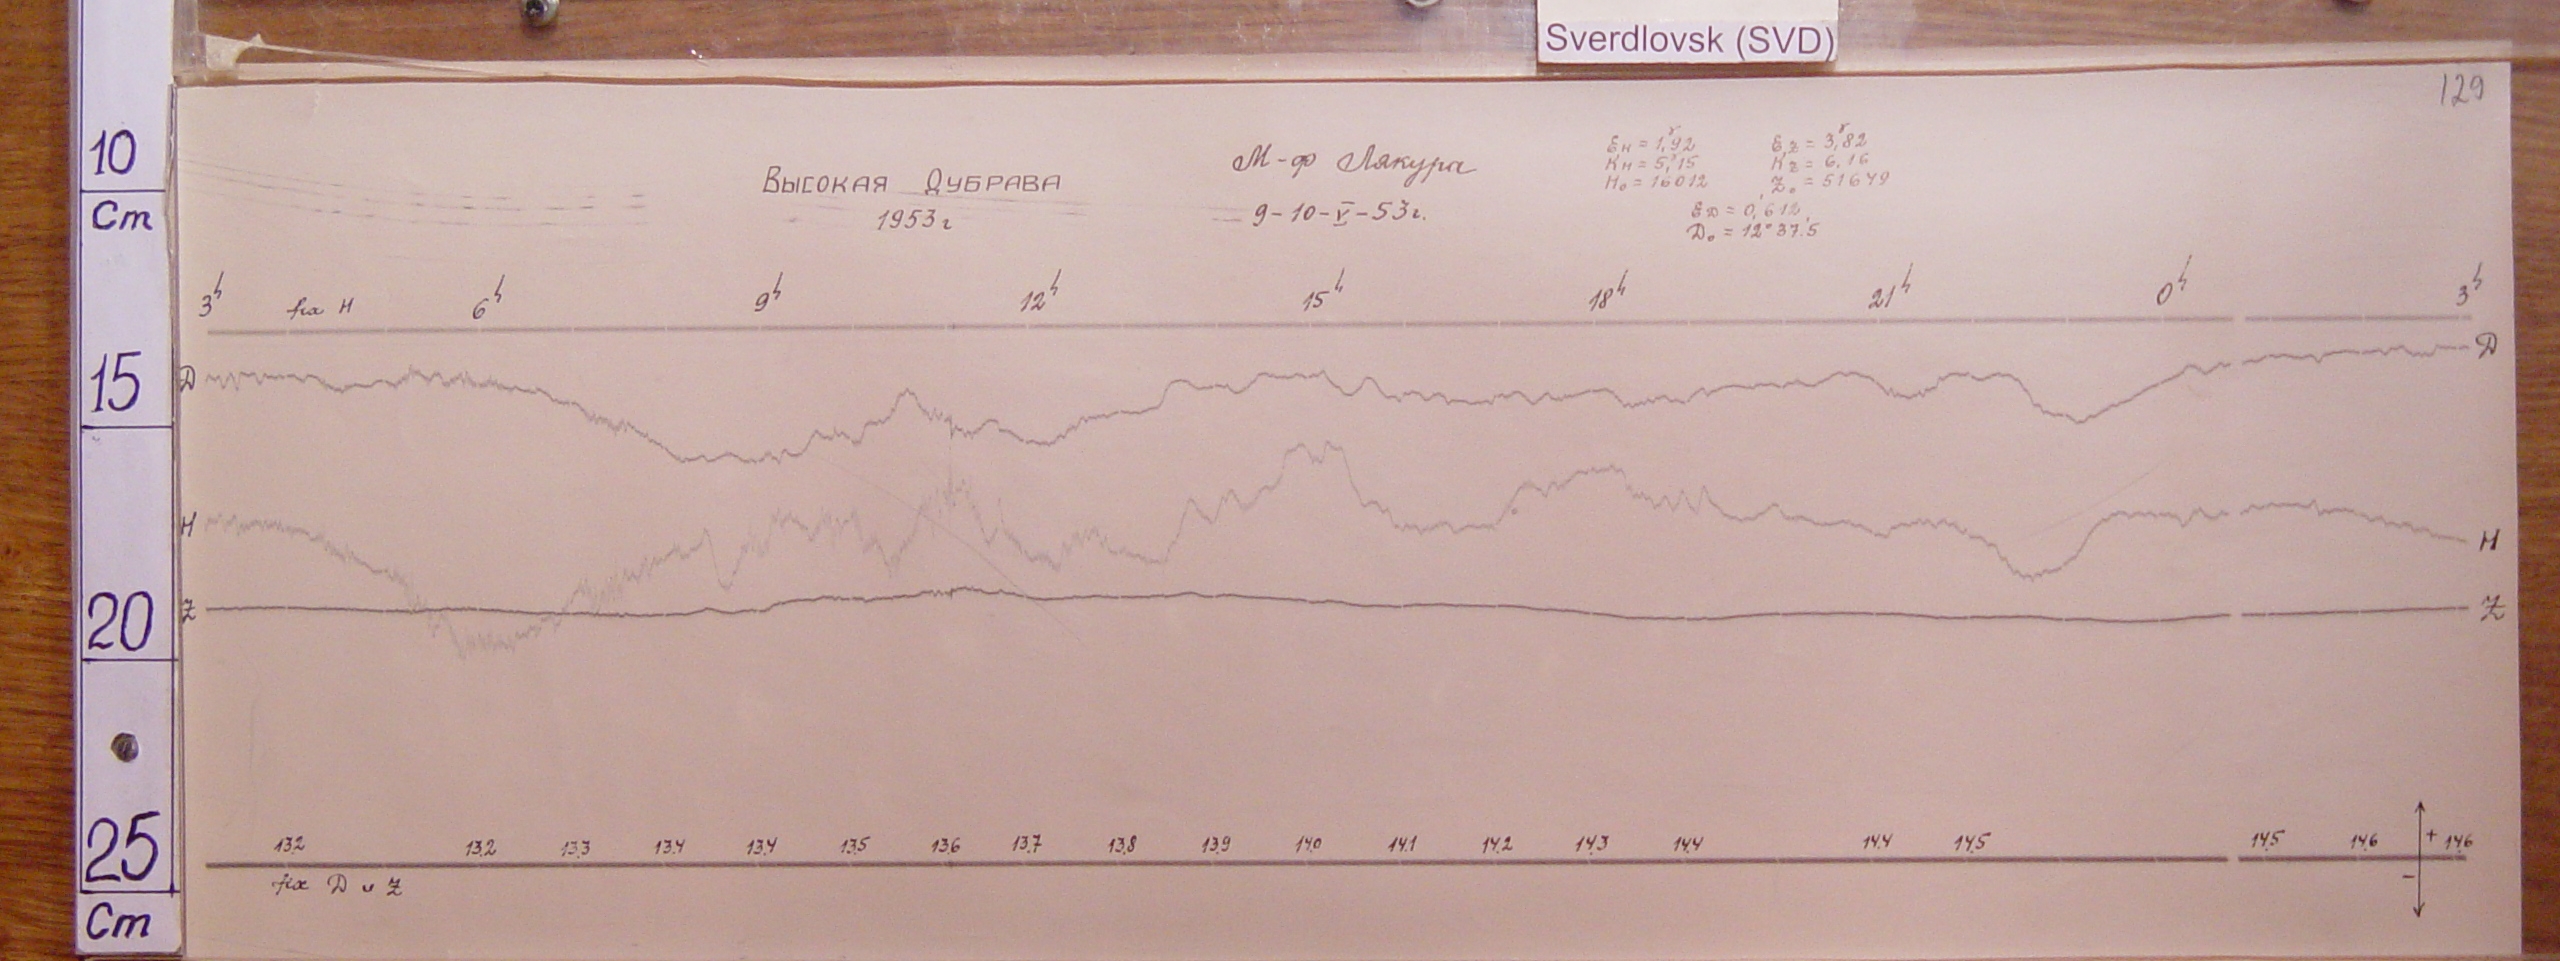 Sverdlovsk (SVD)
129
10
Cm
15
20
25
Cm
Высокая Дубрава
1953г
М-ф Лякура
9-10-V-53г.
Ен = 1,ᵞ92
Кн = 5,15
Н₀ = 16012
Еz = 3,ᵞ82
Кz = 6,16
Z₀ = 51649
ЕD = 0,′612
D₀ = 12°37.5
3h fix H 6h 9h 12h 15h 18h 21h 0h 3h
D D
H H
Z Z
13.2 13.2 13.3 13.4 13.4 13.5 13.6 13.7 13.8 13.9 14.0 14.1 14.2 14.3 14.4 14.4 14.5 14.5 14.6 + 14.6
fix D и Z −